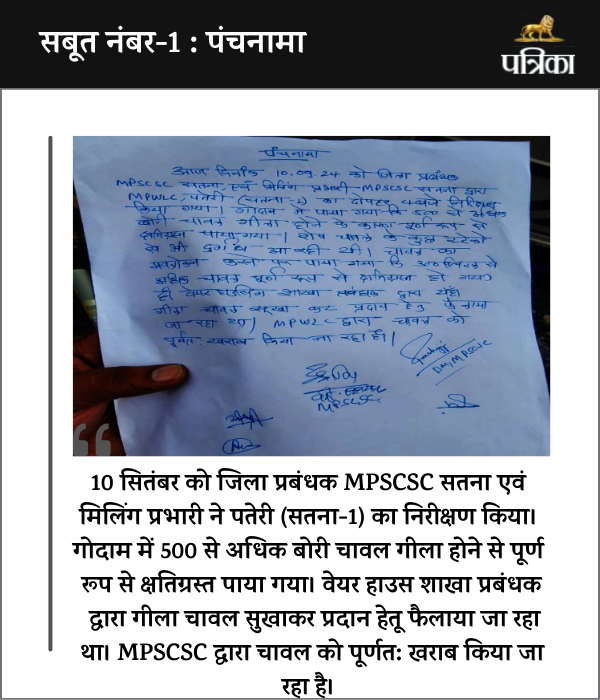 सबूत नंबर-1 : पंचनामा
पत्रिका
पंचनामा
आज दिनाँक 10.09.24 को जिला प्रबंधक
MPSCSC सतना एवं मिलिंग प्रभारी MPSCSC सतना द्वारा
MPWLC पतेरी (सतना-1) का दोपहर निरीक्षण
किया गया। गोदाम में पाया गया कि 500 से अधिक
बोरी चावल गीला होने के कारण पूर्ण रूप से
क्षतिग्रस्त पाया गया। शेष चावल के कुछ स्टेको
से भी दुर्गंध आ रही थी। चावल का
अवलोकन करने पर पाया गया कि 300 क्विंटल से
अधिक चावल पूर्ण रूप से क्षतिग्रस्त हो गया
है। वेयर हाउसिंग शाखा प्रबंधक द्वारा यहाँ
गीला चावल सुखा कर प्रदान हेतु फैलाया
जा रहा था। MPWLC द्वारा चावल को
पूर्णतः खराब किया जा रहा है।
DM, MPSCSC
MPSCSC
10 सितंबर को जिला प्रबंधक MPSCSC सतना एवं
मिलिंग प्रभारी ने पतेरी (सतना-1) का निरीक्षण किया।
गोदाम में 500 से अधिक बोरी चावल गीला होने से पूर्ण
रूप से क्षतिग्रस्त पाया गया। वेयर हाउस शाखा प्रबंधक
द्वारा गीला चावल सुखाकर प्रदान हेतू फैलाया जा रहा
था। MPSCSC द्वारा चावल को पूर्णत: खराब किया जा
रहा है।